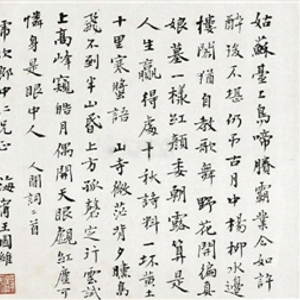 姑蘇臺上烏啼賸霸業今如許
醉後不堪仍弔古月中楊柳水邊
樓閣猶自教歌舞野花開遍真
娘墓一樣紅顏委朝露算是
人生贏得處千秋詩料一抔黃土
十里寒螿語 山寺微茫背夕曛鳥
飛不到半山昏上方孤磬定行雲試
上高峰窺皓月偶開天眼覷紅塵可
憐身是眼中人 人間詞二首
次仁兄正 海甯王國維